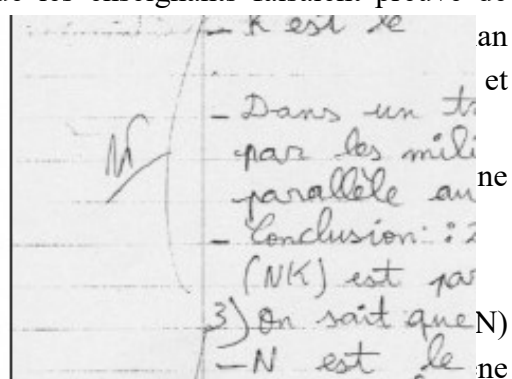 de les enseignants faisaient preuve de
- K est le
an
et
- Dans un tr
par les mili
ne
parallèle au
- Conclusion : 2
(NK) est par
3) On sait que N)
- N est le
ène